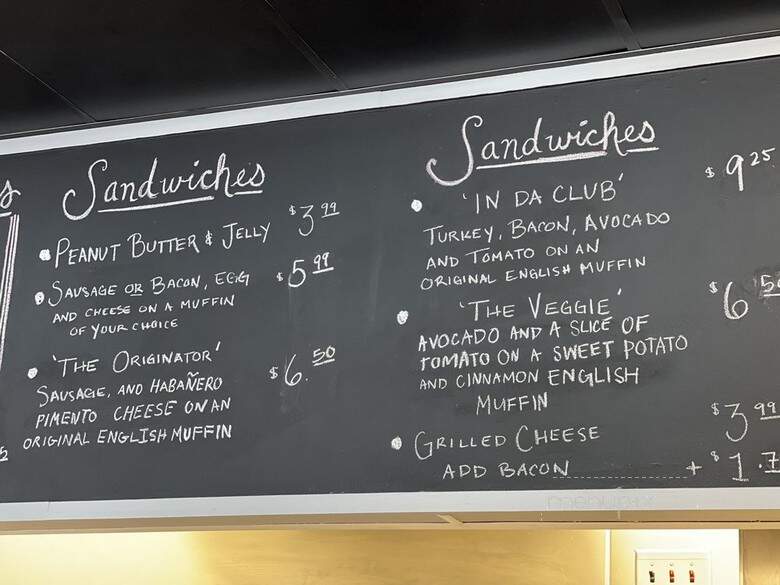 Sandwiches
• PEANUT BUTTER & JELLY $3.99
• SAUSAGE OR BACON, EGG $5.99
AND CHEESE ON A MUFFIN
OF YOUR CHOICE
• 'THE ORIGINATOR' $6.50
SAUSAGE, AND HABAÑERO
PIMENTO CHEESE ON AN
ORIGINAL ENGLISH MUFFIN
Sandwiches
• 'IN DA CLUB' $9.25
TURKEY, BACON, AVOCADO
AND TOMATO ON AN
ORIGINAL ENGLISH MUFFIN
• 'THE VEGGIE' $6.50
AVOCADO AND A SLICE OF
TOMATO ON A SWEET POTATO
AND CINNAMON ENGLISH
MUFFIN
• GRILLED CHEESE $3.99
ADD BACON + $1.7